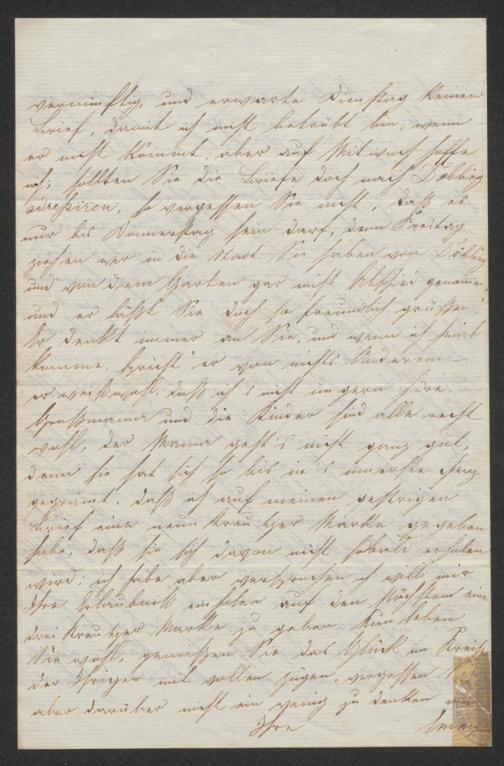 vernünftig, und erwarte Dienstag keinen
Brief, damit ich nicht betrübt bin, wenn
er nicht kömmt; aber auf Mittwoch hoffe
ich; sollten Sie die Briefe doch nach Döbling
adressiren, so vergessen Sie nicht, daß es
nur bis Donnerstag sein darf, denn Freitag
ziehen wir in die Stadt. Sie haben von Döbling
und von dem Garten gar nicht Abschied genommen
und er läßt Sie doch so freundlich grüßen!
Er denkt immer an Sie, und wenn ich
komme, spricht er von nichts Anderem –
er weiß wohl, daß ich's nicht ungern höre.
Großmama und die Kinder sind alle recht
wohl, der Mama geht's nicht ganz gut,
denn sie hat sich so bis in's innerste Herz
gegrämt, daß ich auf meinen gestrigen
Brief eine neun Kreutzer Marke gegeben
habe, daß sie sich davon nicht sobald erholen
wird; ich habe aber versprochen ich will mir
Ihre Erlaubniß einholen auf den nächsten eine
drei Kreutzer Marke zu geben. Nun leben
Sie wohl, genießen Sie das Glück im Kreise
der Ihrigen mit vollen Zügen, vergessen
aber darüber nicht ein wenig zu denken an
Ihre